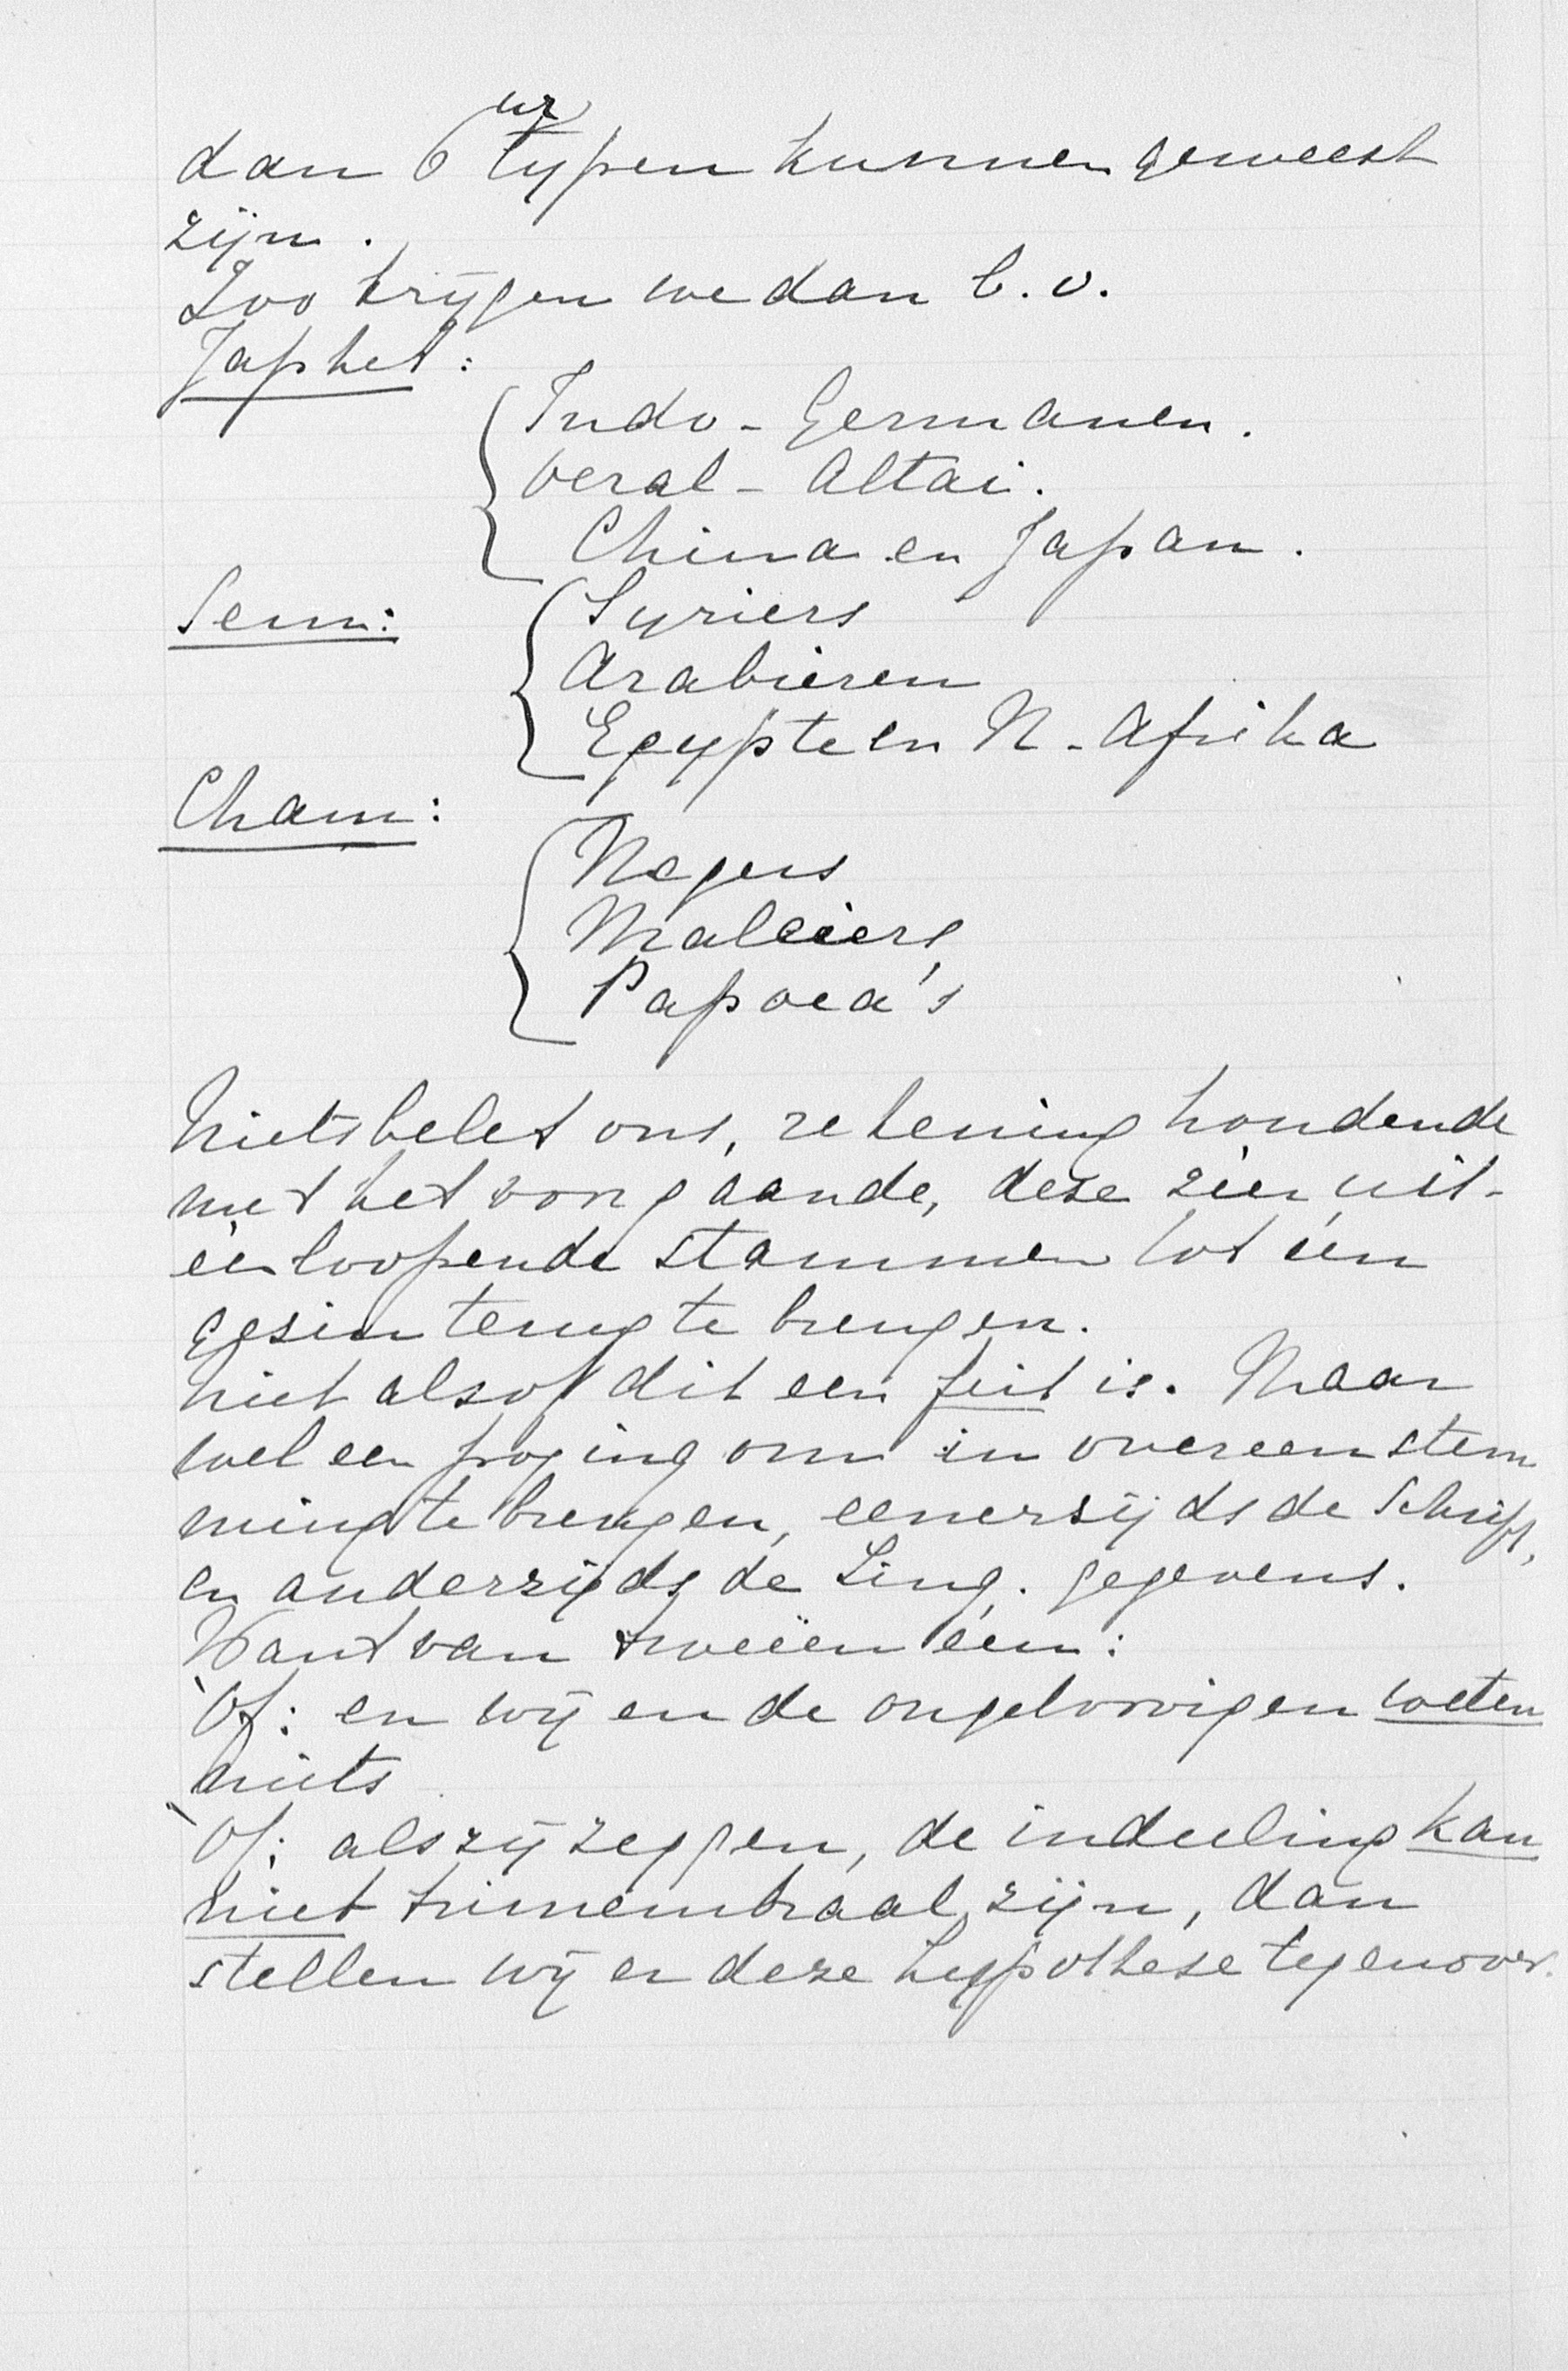 dan 6 ur typen kunnen geweest
zijn.
Zoo krijgen we dan b.v.
Japhet:
Indo-Germanen.
Oeral-Altai.
China en Japan.
Sem:
Syriers
Arabieren
Egypte en N-Afrika
Cham:
Negers
Maleiers
Papoea's
Niets belet ons, rekening houdende
met het voorgaande, deze zéér uit-
eenloopende stammen tot één
gezin terug te brengen.
Niet alsof dit een feit is. Maar
wel een poging om in overeenstem
ming te brengen, eenerzijds de Schrift,
en anderzijds de Ling. gegevens.
Want van tweeën één:
Òf: en wij en de ongeloovigen weten
niets
Òf: als zij zeggen, de indeeling kan
niet trimembraal zijn, dan
stellen wij er deze hypothese tegenover.